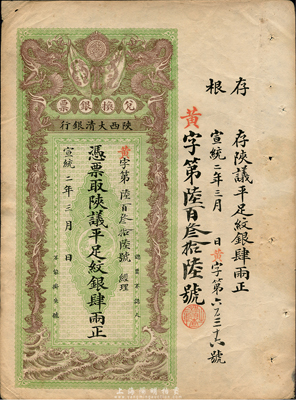 存根
存陝議平足紋銀肆兩正
宣統二年三月 日黃字第六百三十六號
黃字第陸百叄拾陸號
兌換銀票
陝西大清銀行
黃字第陸百叄拾陸號 經理
憑票取陝議平足紋銀肆兩正
宣統二年三月 日